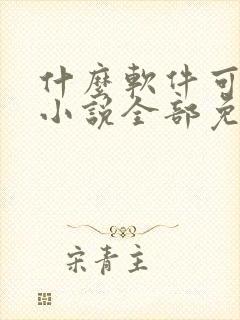 什麼軟件可
小說全部免
宋青主